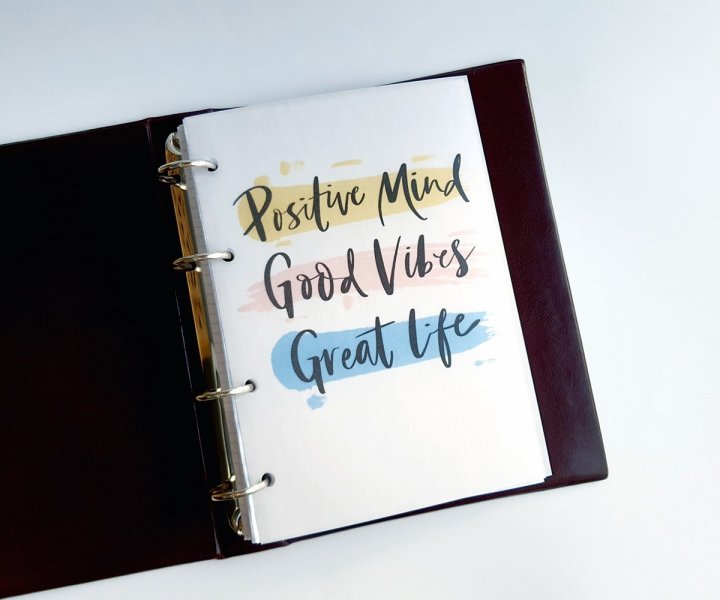 Positive Mind
Good Vibes
Great life